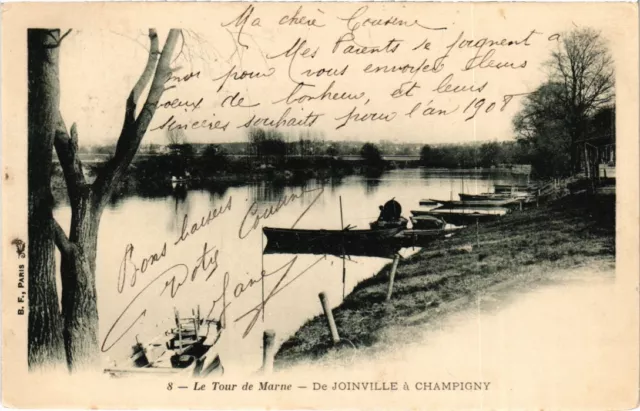 Ma chère Cousine
Mes Parents se joignent à
moi pour vous envoyer leurs
voeux de bonheur, et leurs
sincères souhaits pour l'an 1908
Bons baisers Cousine
Doty
Jane
B. F., PARIS
8 — Le Tour de Marne — De JOINVILLE à CHAMPIGNY